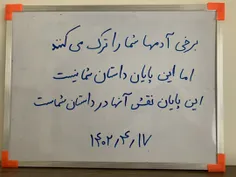 برخی آدمها شما را ترک می کنند
اما این پایان داستان شما نیست
این پایان نقش آنها در داستان شماست
۱۴۰۲٫۴٫۱۷